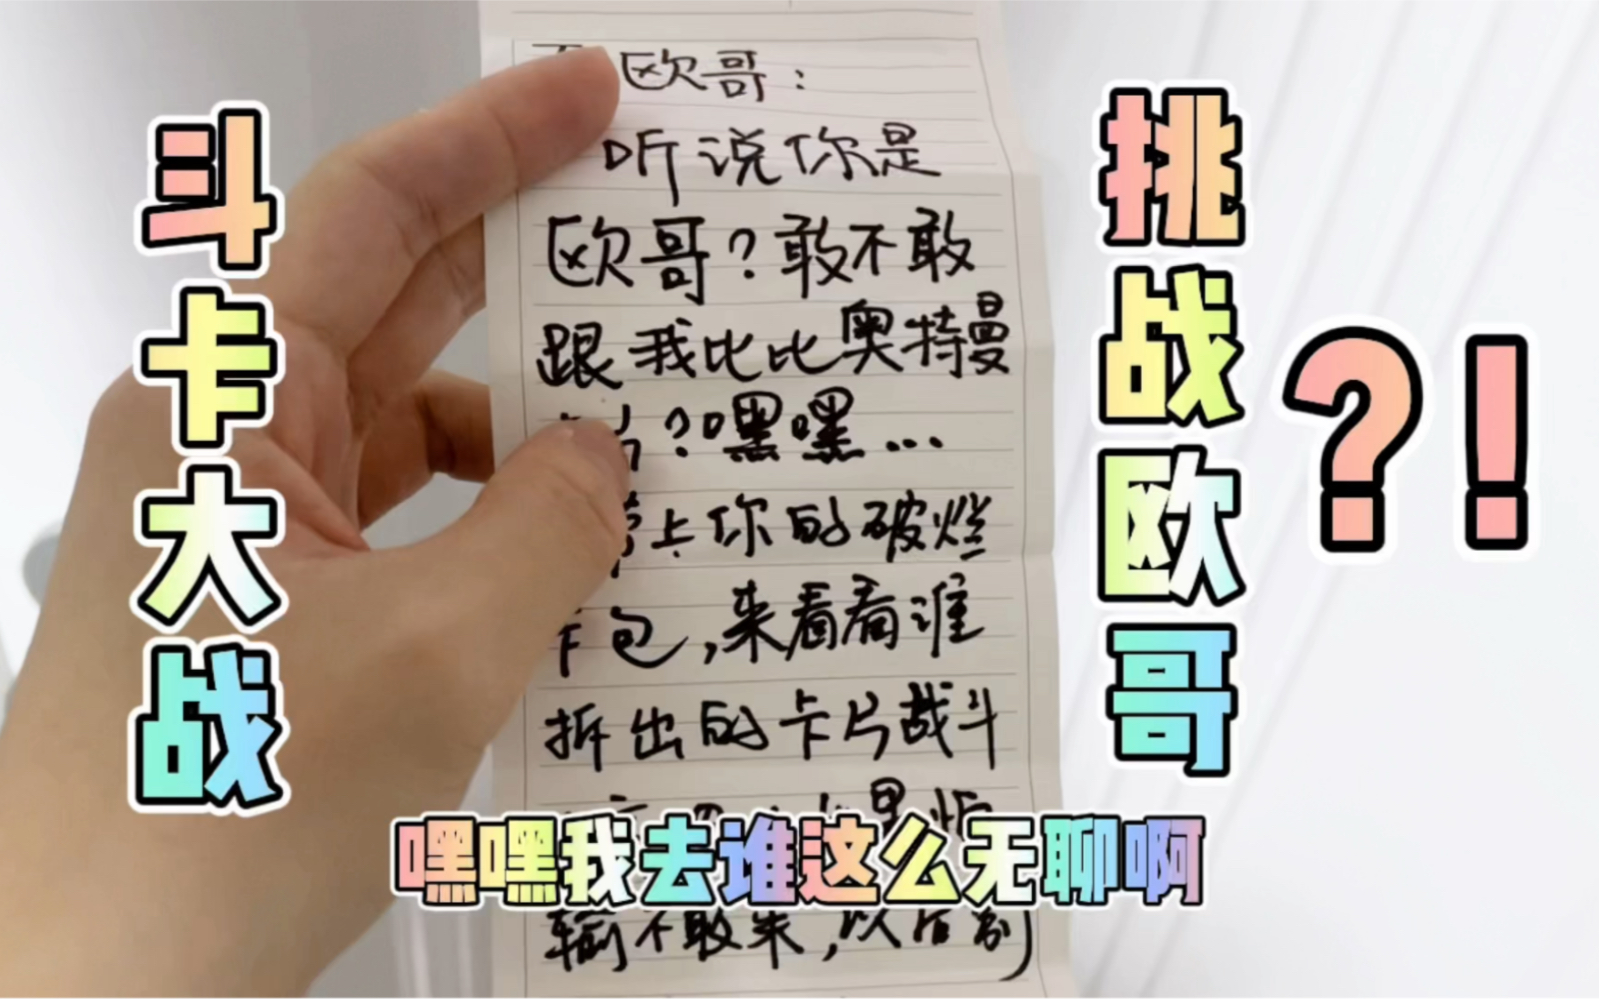 斗卡大战
挑战欧哥
?!
欧哥:
听说你是
欧哥?敢不敢
跟我比比奥特曼
?嘿嘿...
上你的破烂
卡包,来看看谁
拆出的卡片战斗
果怕
嘿嘿我去谁这么无聊啊
输不敢来,以后别